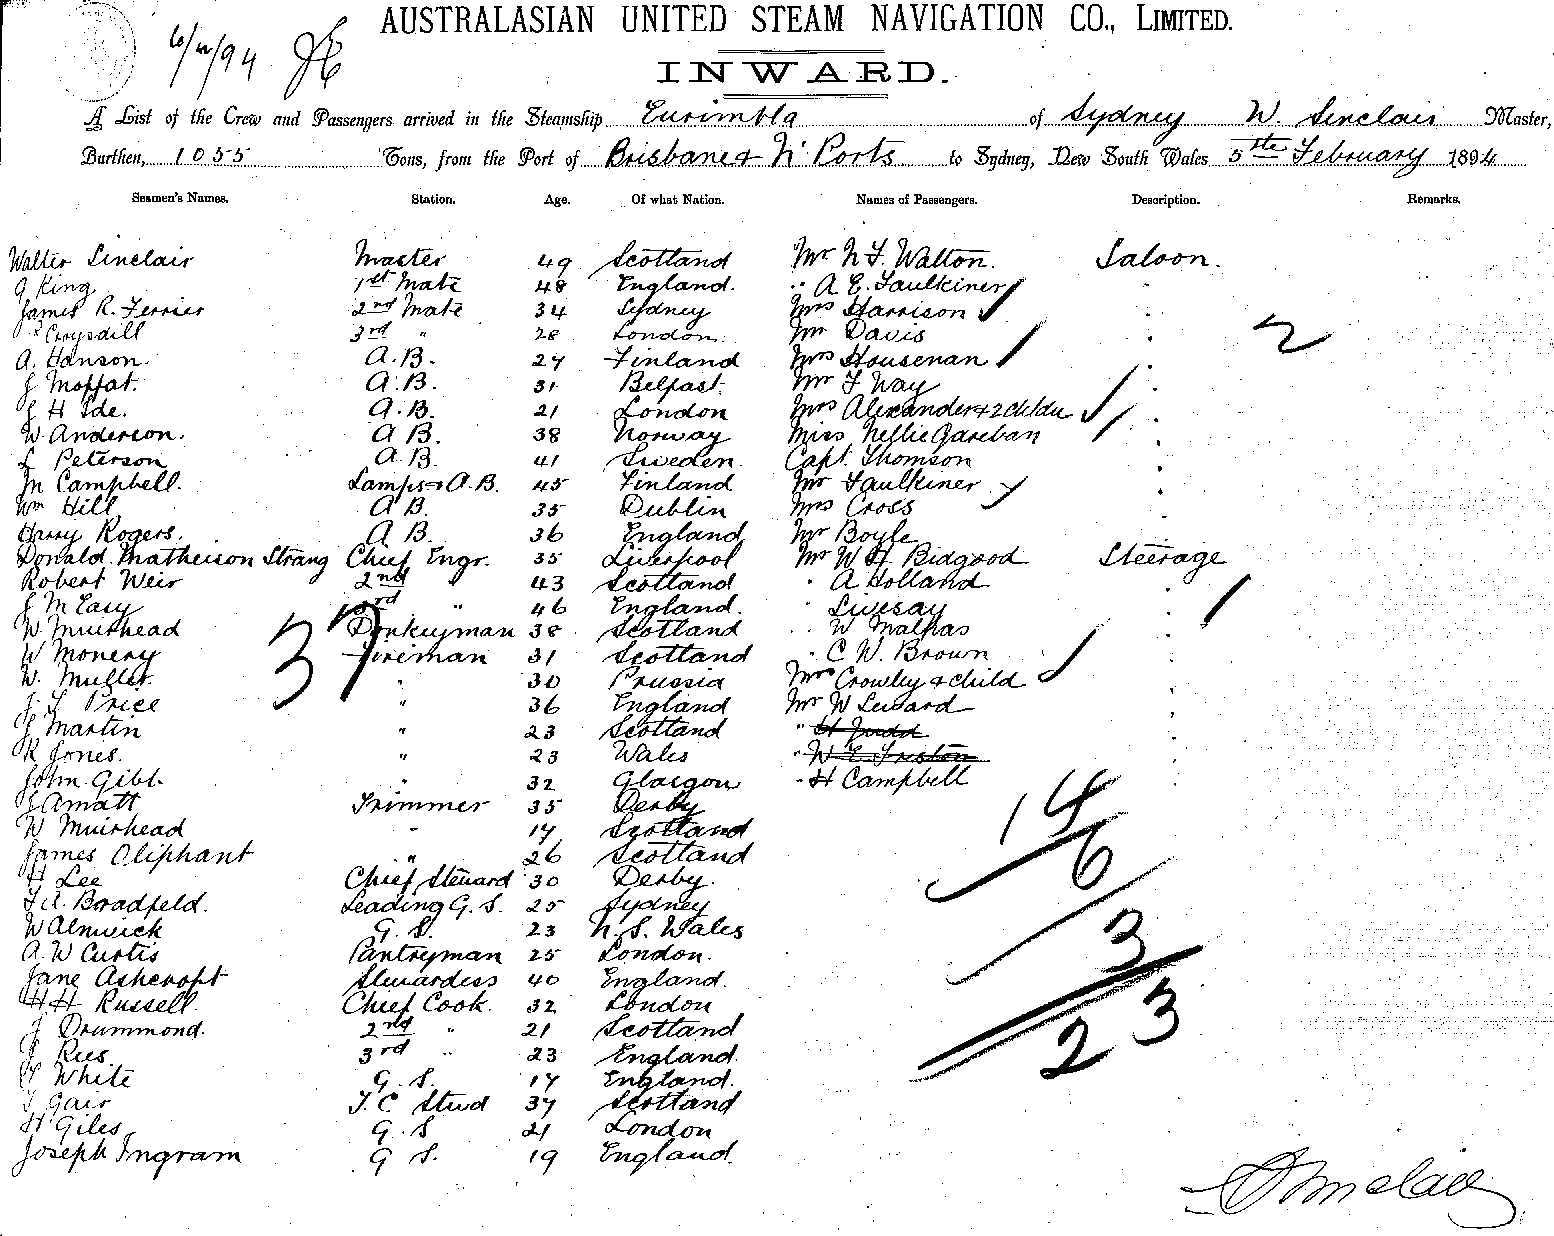 AUSTRALASIAN UNITED STEAM NAVIGATION CO., LIMITED.
INWARD.
A List of the Crew and Passengers arrived in the Steamship Eurimbla of Sydney W. Sinclair Master,
Burthen, 1055 Tons, from the Port of Brisbane & N Ports to Sydney, New South Wales 5th February 1894
Seamen's Names. Station. Age. Of what Nation. Names of Passengers. Description. Remarks.
Walter Sinclair Master 49 Scotland Mr N F Walton. Saloon.
G King 1st Mate 48 England. " A E Faulkiner
James R. Ferrier 2nd Mate 34 Sydney Mrs Harrison
Croysdill 3rd " 28 London Mr Davis 2
A. Hanson. A.B. 27 Finland Mrs Housenan
J Moffat. A.B. 31 Belfast Mr F Way
J H Ide. A.B. 21 London Mrs Alexander & 2 childn
W Anderson. A B. 38 Norway Miss Nellie
L Peterson A.B. 41 Sweden. Capt. Thomson
M Campbell. Lamps & A.B. 45 Finland Mr Faulkiner
Wm Hill A B. 35 Dublin Mrs Cross
Harry Rogers. A B. 36 England Mr Boyle
Donald Matheison Strang Chief Engr. 35 Liverpool Mr W H Bidgood Steerage
Robert Weir 2nd 43 Scotland " A Holland
J M Easy 3rd " 46 England. " Livesay
W Muirhead Donkeyman 38 Scotland " W Malpas
W Monery Fireman 31 Scotland " C W. Brown
W. Muller " 30 Prussia Mrs Crowley & child
J. S Price " 36 England Mr W Seward
J Martin " 23 Scotland " H Judd
R Jones. " 23 Wales " W E Friston
John Gibb " 32 Glasgow " H Campbell
J Amatt Trimmer 35 Derby
W Muirhead " 17 Scotland
James Oliphant " 26 Scotland
H Lee Chief Steward 30 Derby.
F A. Bradfeld. Leading G. S. 25 Sydney
W Alnwick G. S. 23 N. S. Wales
A. W Curtis Pantryman 25 London.
Jane Ashcroft Stewardess 40 England.
H H Russell Chief Cook. 32 London
J Drummond. 2nd " 21 Scotland
J Rees 3rd " 23 England.
White G. S. 17 England.
T Gair F. C Stwd 37 Scotland
H Giles G. S 21 London
Joseph Ingram G S. 19 England.
37
14
6
3
23